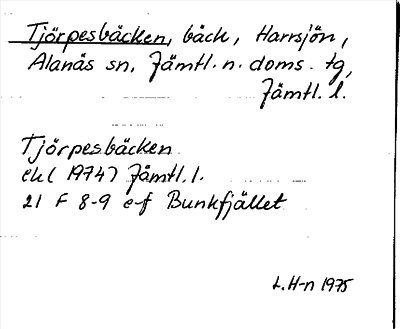 Tjörpesbäcken, bäck, Harrsjön,
Alanäs sn, Jämtl. n. doms. tg,
Jämtl. l.
Tjörpesbäcken
ek( 1974) Jämtl. l.
21 F 8-9 e-f Bunkfjället
L.H-n 1975